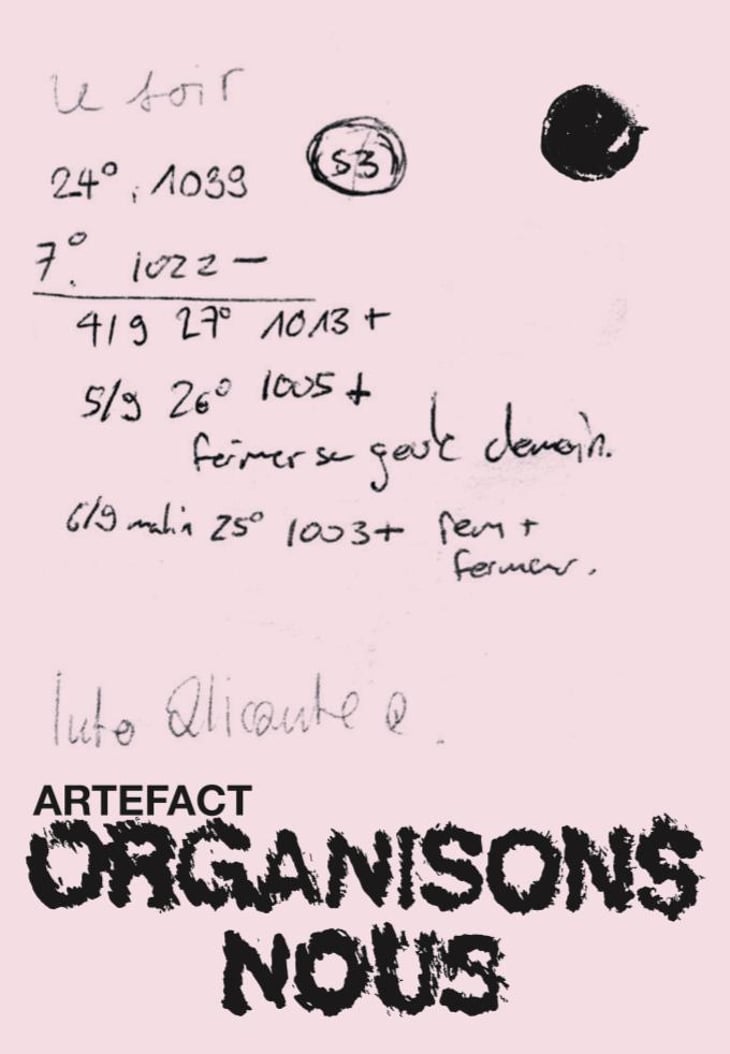 Le soir
53
24° , 1039
7°. 1022 –
4/9 27° 1013 +
5/9 26° 1005 +
fermer se demain.
6/9 matin 25° 1003 +
fermer.
Alicante
ARTEFACT
ORGANISONS
NOUS